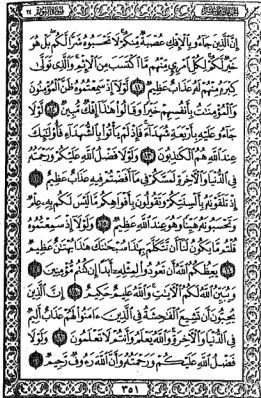 إِنَّ ٱلَّذِينَ جَآءُو بِٱلْإِفْكِ عُصْبَةٌ مِّنكُمْ لَا تَحْسَبُوهُ شَرًّا لَّكُم بَلْ هُوَ
خَيْرٌ لَّكُمْ لِكُلِّ ٱمْرِئٍ مِّنْهُم مَّا ٱكْتَسَبَ مِنَ ٱلْإِثْمِ وَٱلَّذِى تَوَلَّىٰ
كِبْرَهُۥ مِنْهُمْ لَهُۥ عَذَابٌ عَظِيمٌ ١١ لَّوْلَآ إِذْ سَمِعْتُمُوهُ ظَنَّ ٱلْمُؤْمِنُونَ
وَٱلْمُؤْمِنَٰتُ بِأَنفُسِهِمْ خَيْرًا وَقَالُوا۟ هَٰذَآ إِفْكٌ مُّبِينٌ ١٢ لَّوْلَا
جَآءُو عَلَيْهِ بِأَرْبَعَةِ شُهَدَآءَ فَإِذْ لَمْ يَأْتُوا۟ بِٱلشُّهَدَآءِ فَأُو۟لَٰٓئِكَ
عِندَ ٱللَّهِ هُمُ ٱلْكَٰذِبُونَ ١٣ وَلَوْلَا فَضْلُ ٱللَّهِ عَلَيْكُمْ وَرَحْمَتُهُۥ
فِى ٱلدُّنْيَا وَٱلْءَاخِرَةِ لَمَسَّكُمْ فِى مَآ أَفَضْتُمْ فِيهِ عَذَابٌ عَظِيمٌ ١٤
إِذْ تَلَقَّوْنَهُۥ بِأَلْسِنَتِكُمْ وَتَقُولُونَ بِأَفْوَاهِكُم مَّا لَيْسَ لَكُم بِهِۦ عِلْمٌ
وَتَحْسَبُونَهُۥ هَيِّنًا وَهُوَ عِندَ ٱللَّهِ عَظِيمٌ ١٥ وَلَوْلَآ إِذْ سَمِعْتُمُوهُ
قُلْتُم مَّا يَكُونُ لَنَآ أَن نَّتَكَلَّمَ بِهَٰذَا سُبْحَٰنَكَ هَٰذَا بُهْتَٰنٌ عَظِيمٌ
١٦ يَعِظُكُمُ ٱللَّهُ أَن تَعُودُوا۟ لِمِثْلِهِۦٓ أَبَدًا إِن كُنتُم مُّؤْمِنِينَ ١٧
وَيُبَيِّنُ ٱللَّهُ لَكُمُ ٱلْءَايَٰتِ وَٱللَّهُ عَلِيمٌ حَكِيمٌ ١٨ إِنَّ ٱلَّذِينَ
يُحِبُّونَ أَن تَشِيعَ ٱلْفَٰحِشَةُ فِى ٱلَّذِينَ ءَامَنُوا۟ لَهُمْ عَذَابٌ أَلِيمٌ
فِى ٱلدُّنْيَا وَٱلْءَاخِرَةِ وَٱللَّهُ يَعْلَمُ وَأَنتُمْ لَا تَعْلَمُونَ ١٩ وَلَوْلَا
فَضْلُ ٱللَّهِ عَلَيْكُمْ وَرَحْمَتُهُۥ وَأَنَّ ٱللَّهَ رَءُوفٌ رَّحِيمٌ ٢٠
٣٥١